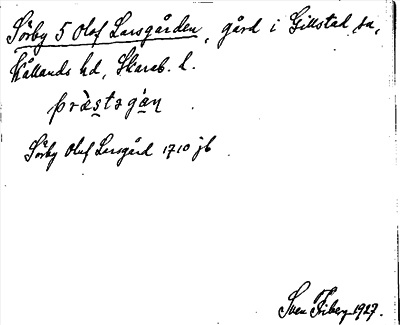 Sörby 5 Olof Larsgården, gård i Gillstad sn,
Kållands hd, Skarab. l.
pràstgán
Sörby Oluf Larsgård 1710 jb
Sven Fiberg 1927.